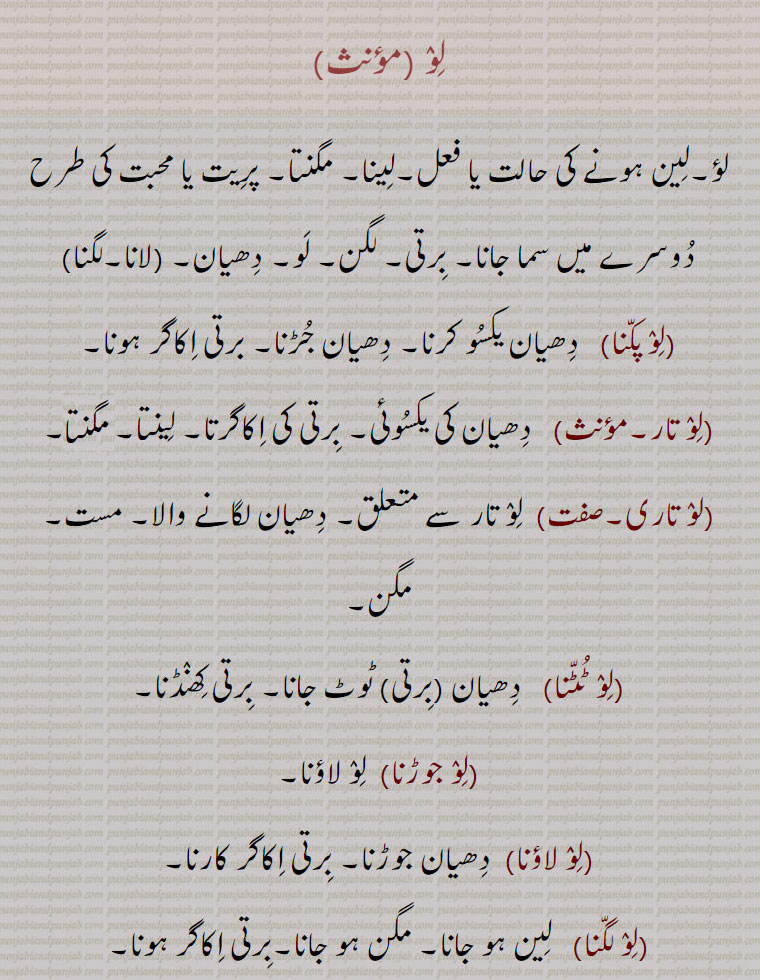 لِوْ (مؤنث)
لوْ۔ لِین ہونے کی حالت یا فعل۔ لِینا۔ مگنتا۔ پرِیت یا محبت کی طرح
دُوسرے میں سما جانا۔ بِرتی۔ لگن۔ لَو۔ دِھیان۔ (لانا۔ لگنا)
(لِوْ پکّنا) دِھیان یکسُو کرنا۔ دِھیان جُڑنا۔ برتی اِکاگر ہونا۔
(لِوْ تار۔ مؤنث) دِھیان کی یکسُوئی۔ بِرتی کی اِکاگرتا۔ لِینتا۔ مگنتا۔
(لِوْ تاری۔ صفت) لِوْ تار سے متعلق۔ دِھیان لگانے والا۔ مست۔
مگن۔
(لِوْ ٹُٹّنا) دِھیان (بِرتی) ٹوٹ جانا۔ بِرتی کِھنْڈنا۔
(لِوْ جوڑنا) لِوْ لاؤنا۔
(لِوْ لاؤنا) دِھیان جوڑنا۔ بِرتی اِکاگر کارنا۔
(لِوْ لگّنا) لِین ہو جانا۔ مگن ہو جانا۔ بِرتی اِکاگر ہونا۔